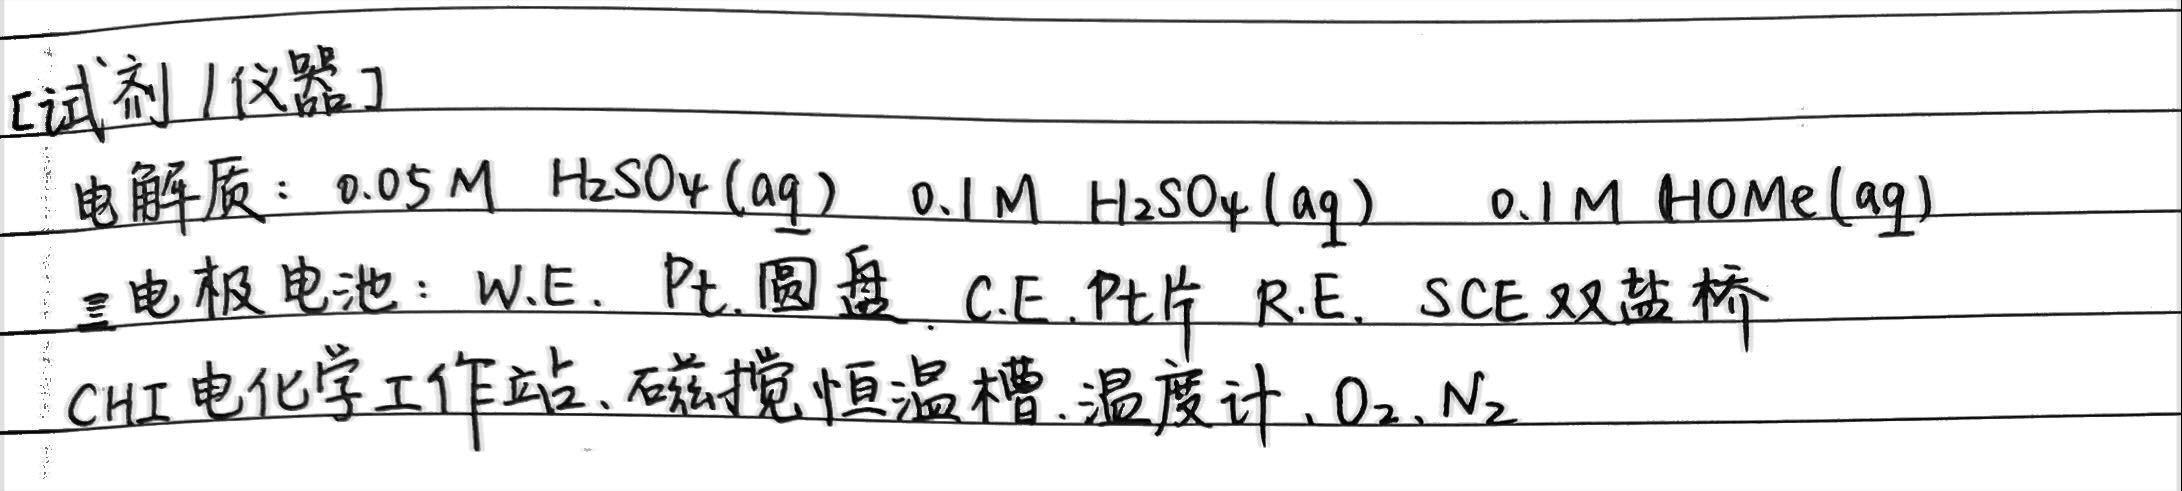 [试剂/仪器]
电解质: 0.05M H₂SO₄(aq) 0.1M H₂SO₄(aq) 0.1M HOMe(aq)
三电极电池: W.E. Pt.圆盘. C.E.Pt片 R.E. SCE双盐桥
CHI电化学工作站、磁搅恒温槽.温度计、O₂、N₂